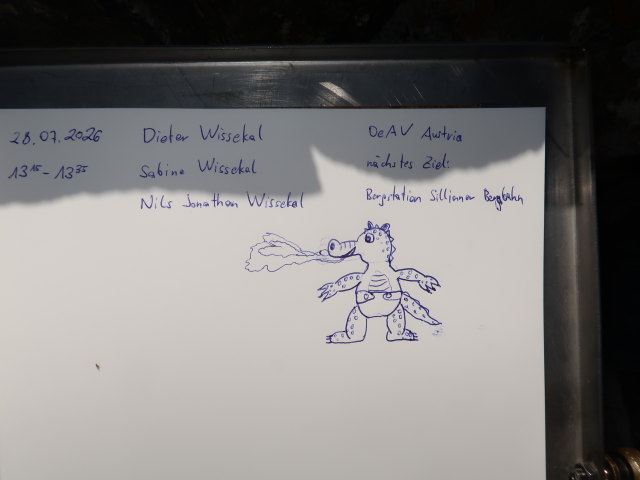 28.07.2026 Dieter Wissekal OeAV Austria
13¹⁵-13³⁵ Sabine Wissekal nächstes Ziel:
Nils Jonathan Wissekal Bergstation Sillianer Bergbahn